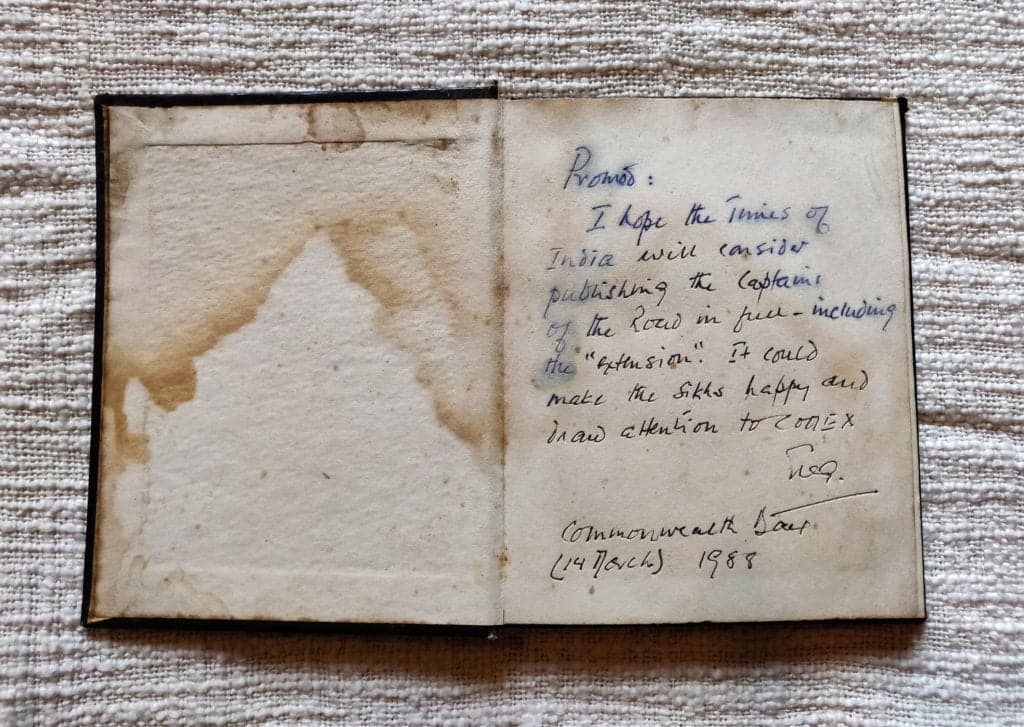 Promod:
I hope the Times of
India will consider
publishing the Captains
of the Road in full - including
the "extension". It could
make the Sikhs happy and
draw attention to
Commonwealth Day
(14 March) 1988